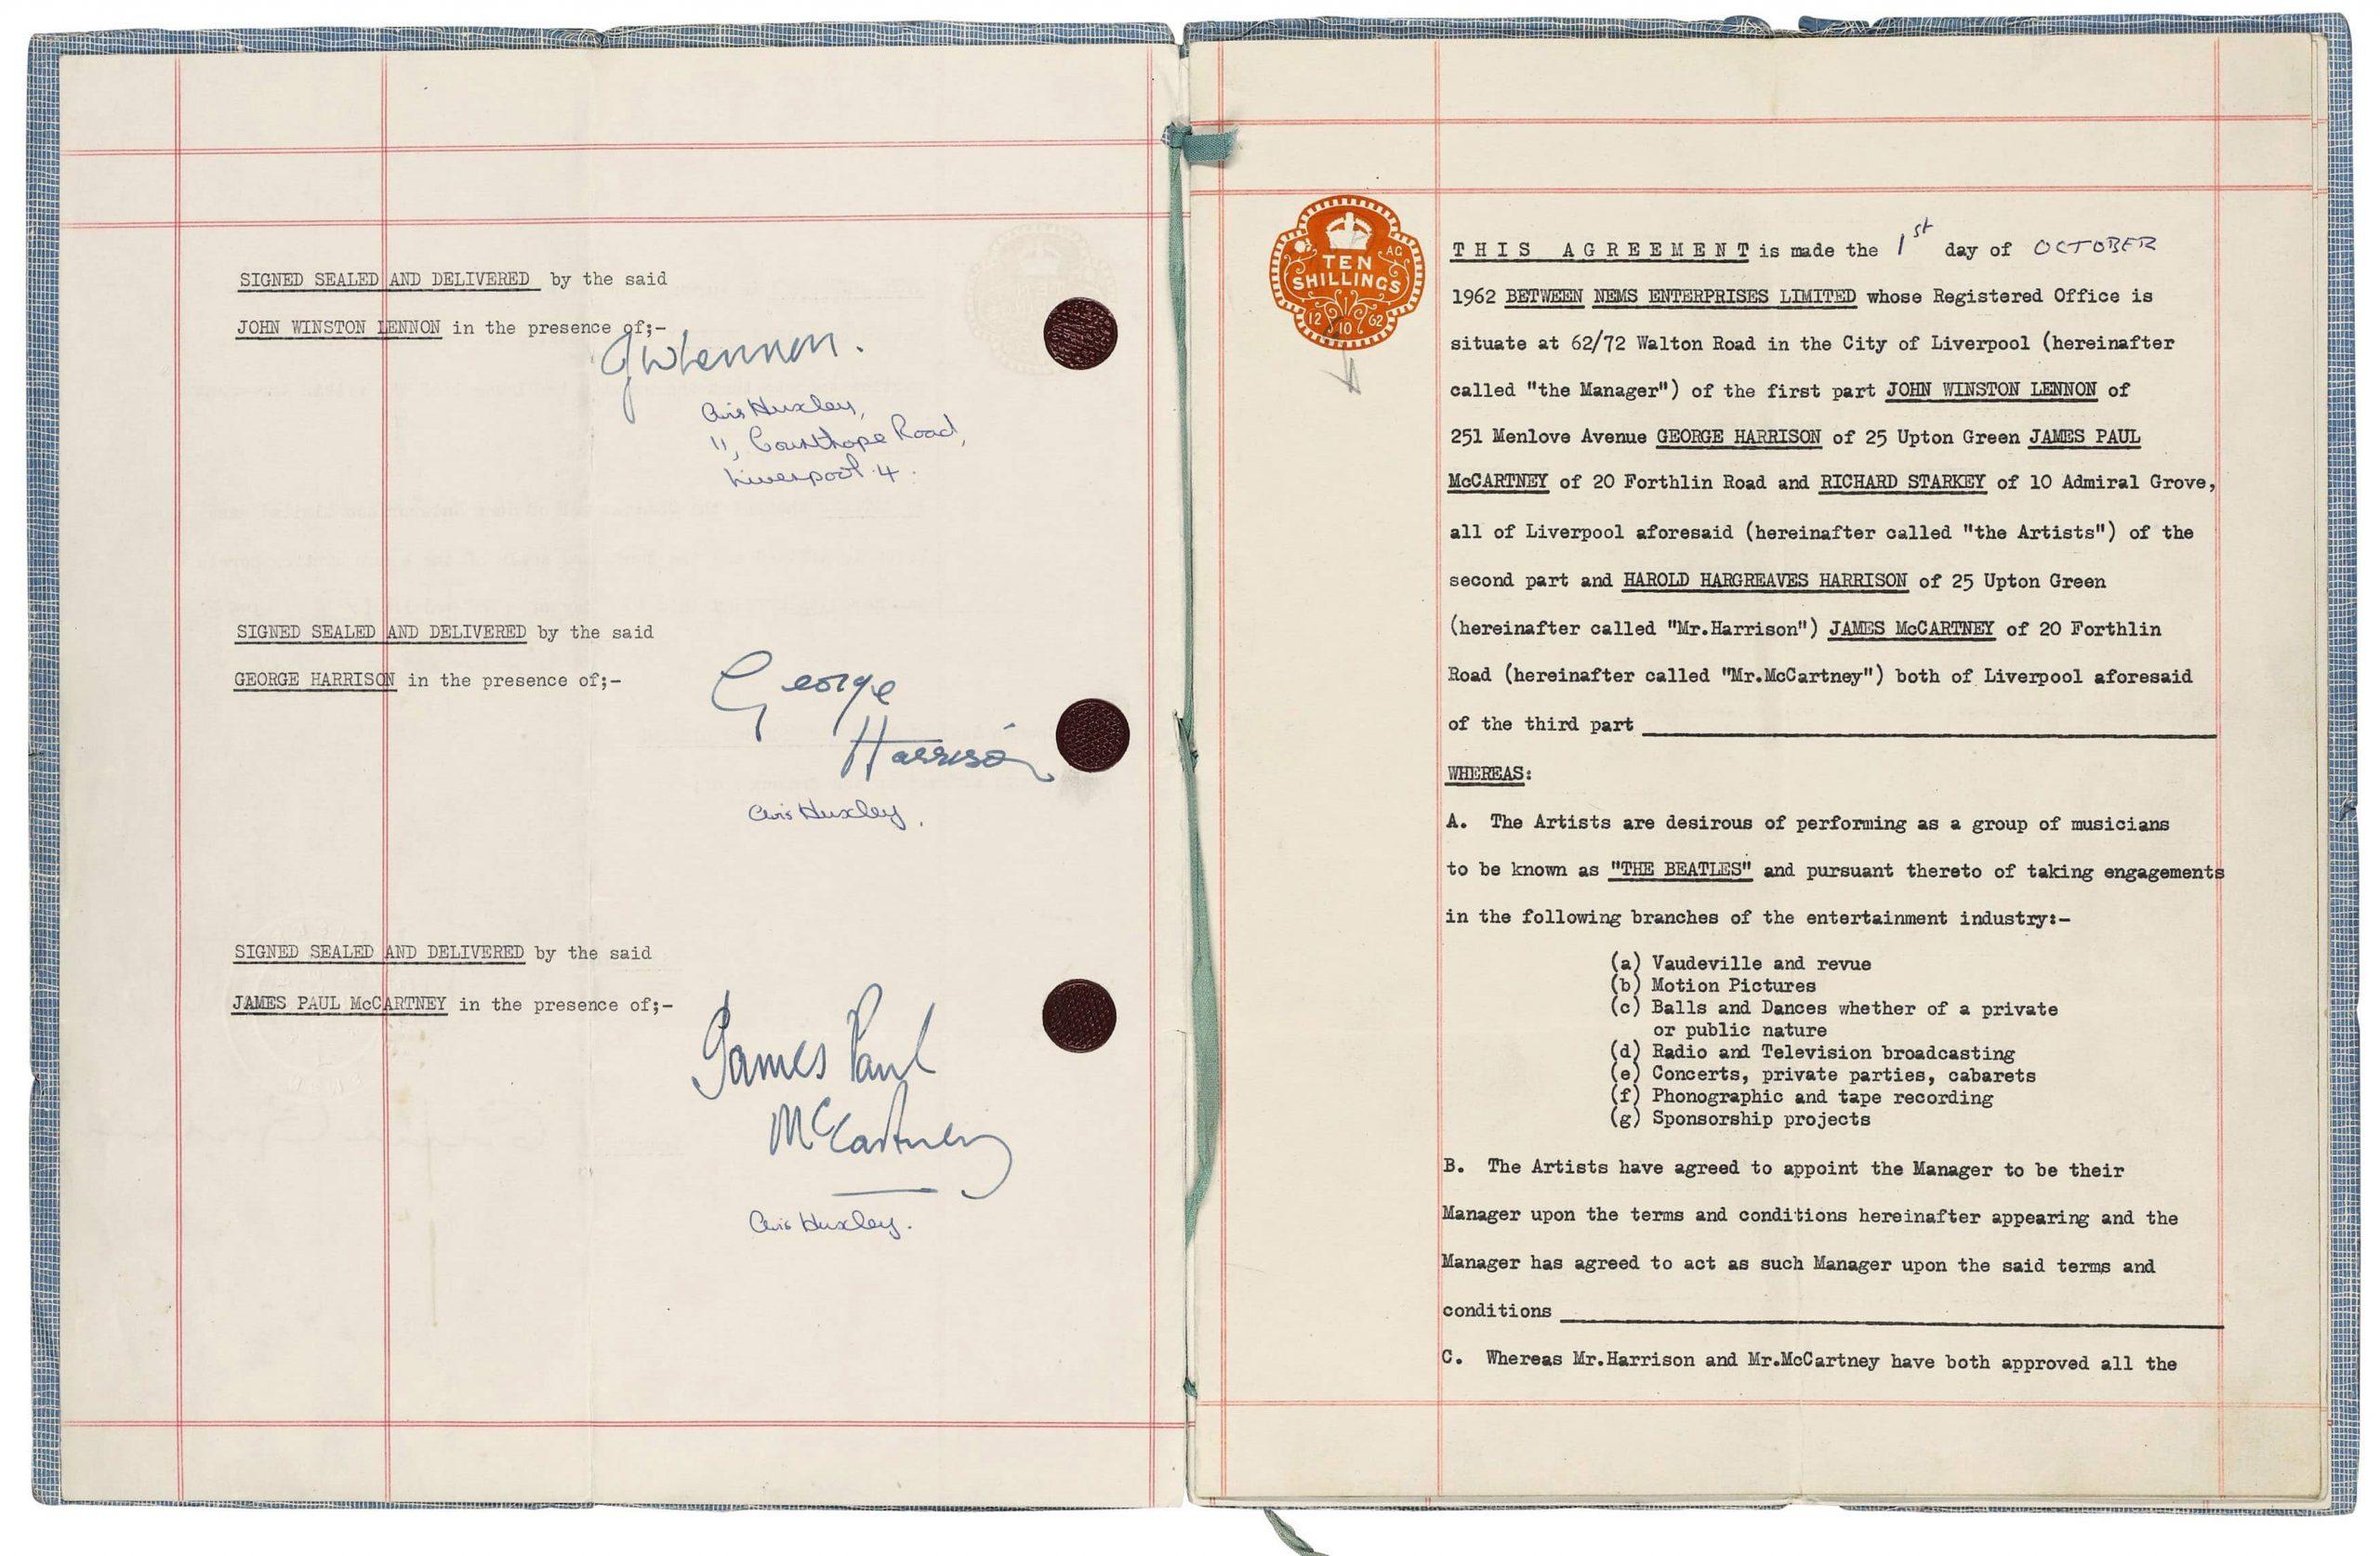 SIGNED SEALED AND DELIVERED by the said
JOHN WINSTON LENNON in the presence of;-
JWLennon.
Avis Huxley,
11, Courthope Road,
Liverpool 4.
SIGNED SEALED AND DELIVERED by the said
GEORGE HARRISON in the presence of;-
George
Harrison
Avis Huxley.
SIGNED SEALED AND DELIVERED by the said
JAMES PAUL McCARTNEY in the presence of;-
James Paul
McCartney
Avis Huxley.
AG
TEN
SHILLINGS
12 10 62
THIS AGREEMENT is made the 1st day of OCTOBER
1962 BETWEEN NEMS ENTERPRISES LIMITED whose Registered Office is
situate at 62/72 Walton Road in the City of Liverpool (hereinafter
called "the Manager") of the first part JOHN WINSTON LENNON of
251 Menlove Avenue GEORGE HARRISON of 25 Upton Green JAMES PAUL
McCARTNEY of 20 Forthlin Road and RICHARD STARKEY of 10 Admiral Grove,
all of Liverpool aforesaid (hereinafter called "the Artists") of the
second part and HAROLD HARGREAVES HARRISON of 25 Upton Green
(hereinafter called "Mr.Harrison") JAMES McCARTNEY of 20 Forthlin
Road (hereinafter called "Mr.McCartney") both of Liverpool aforesaid
of the third part
WHEREAS:
A. The Artists are desirous of performing as a group of musicians
to be known as "THE BEATLES" and pursuant thereto of taking engagements
in the following branches of the entertainment industry:-
(a) Vaudeville and revue
(b) Motion Pictures
(c) Balls and Dances whether of a private
or public nature
(d) Radio and Television broadcasting
(e) Concerts, private parties, cabarets
(f) Phonographic and tape recording
(g) Sponsorship projects
B. The Artists have agreed to appoint the Manager to be their
Manager upon the terms and conditions hereinafter appearing and the
Manager has agreed to act as such Manager upon the said terms and
conditions
C. Whereas Mr.Harrison and Mr.McCartney have both approved all the